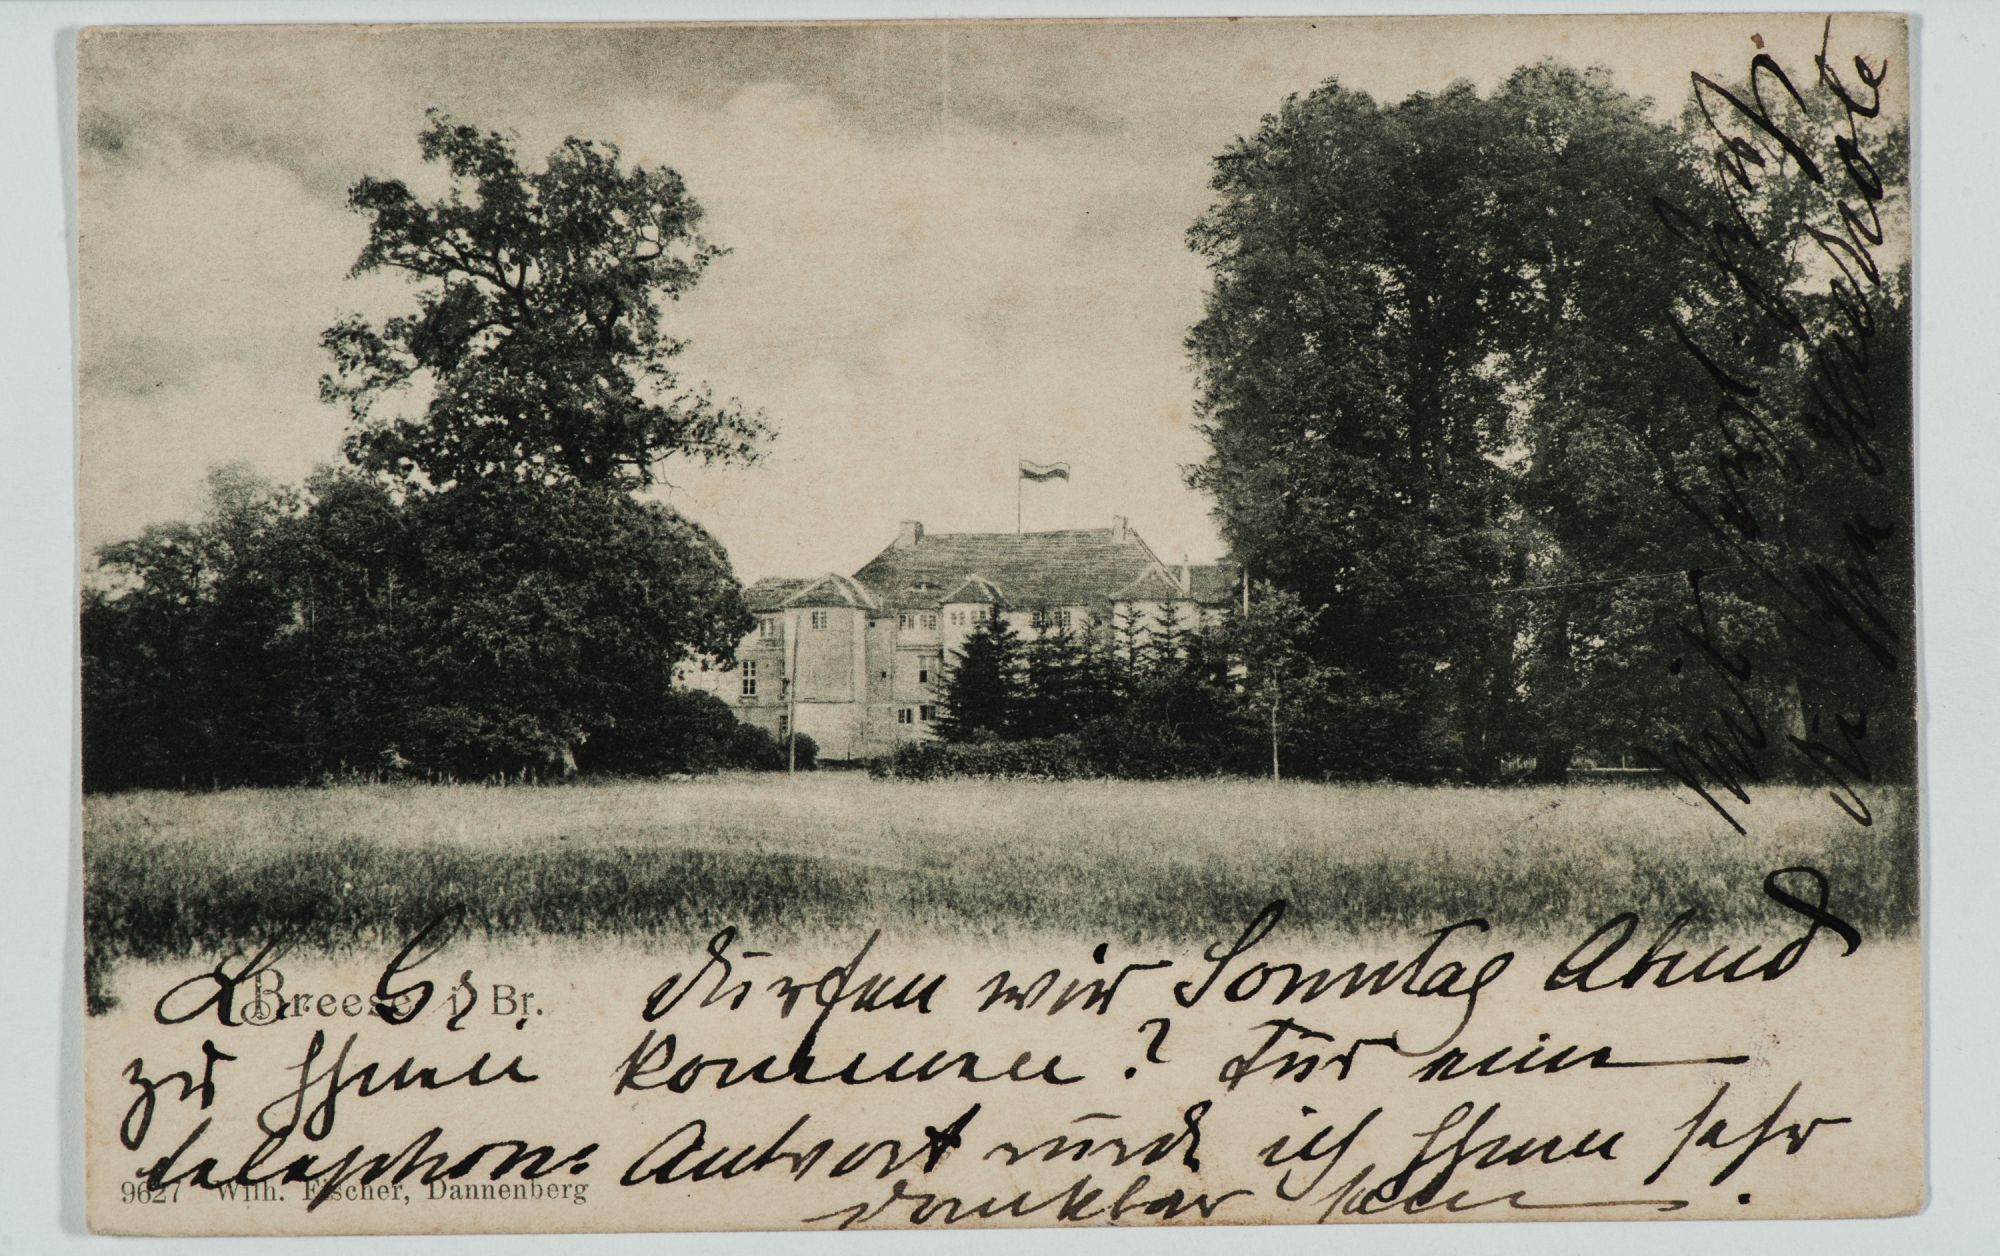 Breese i. Br.
L. G. dürfen wir Sonntag Abend
zu Ihnen kommen? Für eine
telephon. Antwort würde ich Ihnen sehr
dankbar sein.
9627 Wilh. Fischer, Dannenberg
Mit herzl. Gruß
Ihr